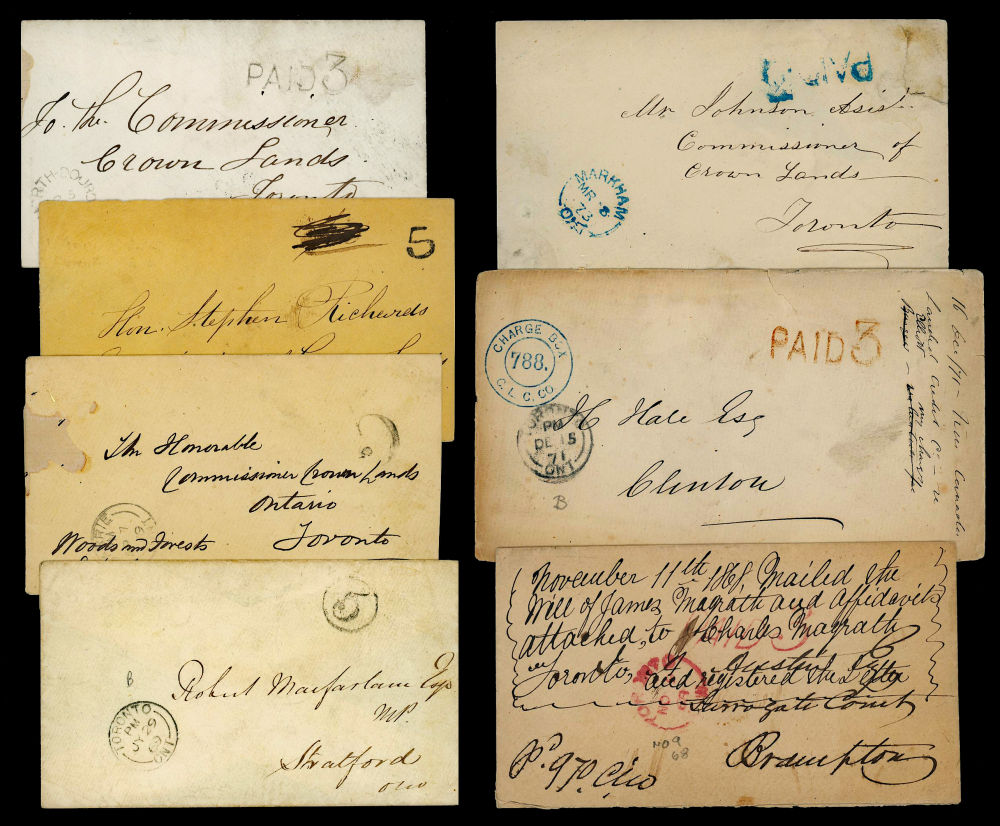 PAID 3
To. the. Commissioner
Crown Lands
Toronto
5
Hon. Stephen Richards
The Honorable
Commissioner Crown Lands
Ontario
Toronto
Woods and Forests
5
B
Robert Macfarlane Esqr
MP.
Stratford
Ont
TORONTO
PM
29
69
ONT
PAID
Mr Johnson Asist
Commissioner of
Crown Lands
Toronto
MARKHAM
MR 8
73
ONT
CHARGE BOX
788.
C. L. C. CO
PAID 3
TORONTO
PM
DE 15
71
ONT
H Hale Esq
Clinton
B
16 Dec /71
Landed Credit Co. – re
my charges
November 11th 1868, Mailed the
Will of James Magrath and Affidavit
attached, to Charles Magrath
Toronto, and registered the Letter
PAID 3
Surrogate Court
Brampton
NO 9
68